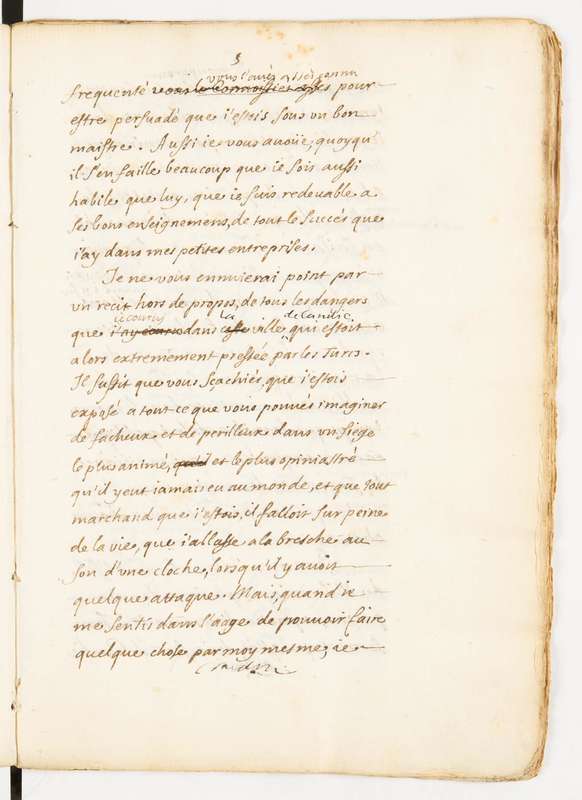 3
vous l'avés assés connu
frequenté vous le connoissiés assés pour
estre persuadé que i'estois sous un bon
maistre. Aussi ie vous avoüe, quoyqu'
il s'en faille beaucoup que ie sois aussi
habile que luy, que ie suis redevable a
ses bons enseignemens, de tout le succés que
i'ay dans mes petites entreprises.
Je ne vous ennuierai point par
un recit hors de propos, de tous les dangers
ie courus la de Candie
que i'ay courus dans cette ville, qui estoit
alors extremement pressée par les Turcs.
Il suffit que vous sçachiés, que i'estois
exposé a tout ce que vous pouués imaginer
de facheux et de perilleux dans un siege
le plus animé, qu'il et le plus opiniastré
qu'il y eut iamais eu au monde, et que tout
marchand que i'estois, il falloit sur peine
de la vie, que i'allasse a la bresche au
son d'une cloche, lorsqu'il y avoit
quelque attaque. Mais, quand ie
me sentis dans l'aage de pouvoir faire
quelque chose par moy mesme, ie